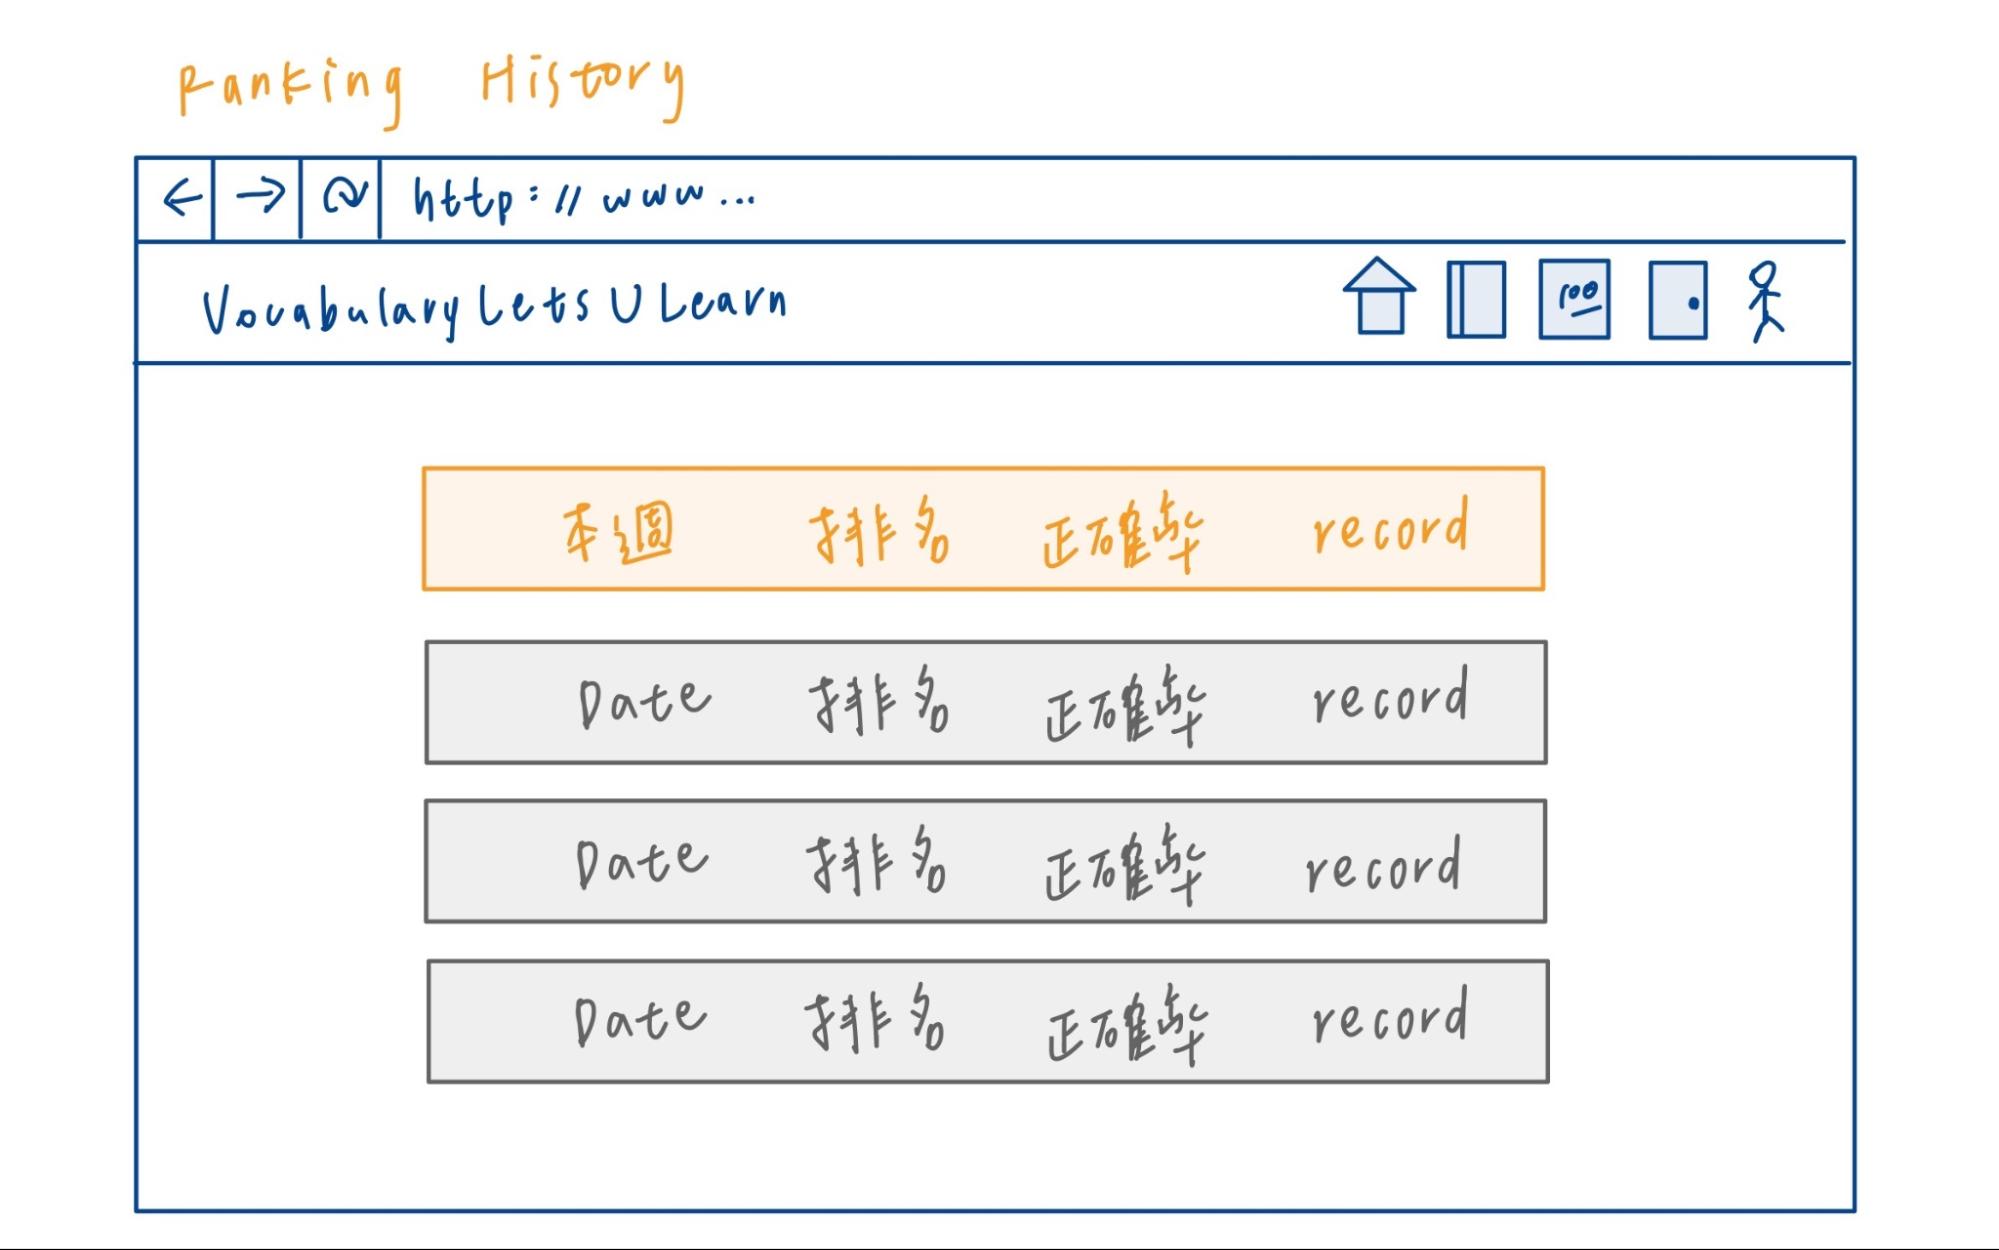 Ranking History
http://www...
VocabularyLetsULearn
100
本週 排名 正確率 record
Date 排名 正確率 record
Date 排名 正確率 record
Date 排名 正確率 record